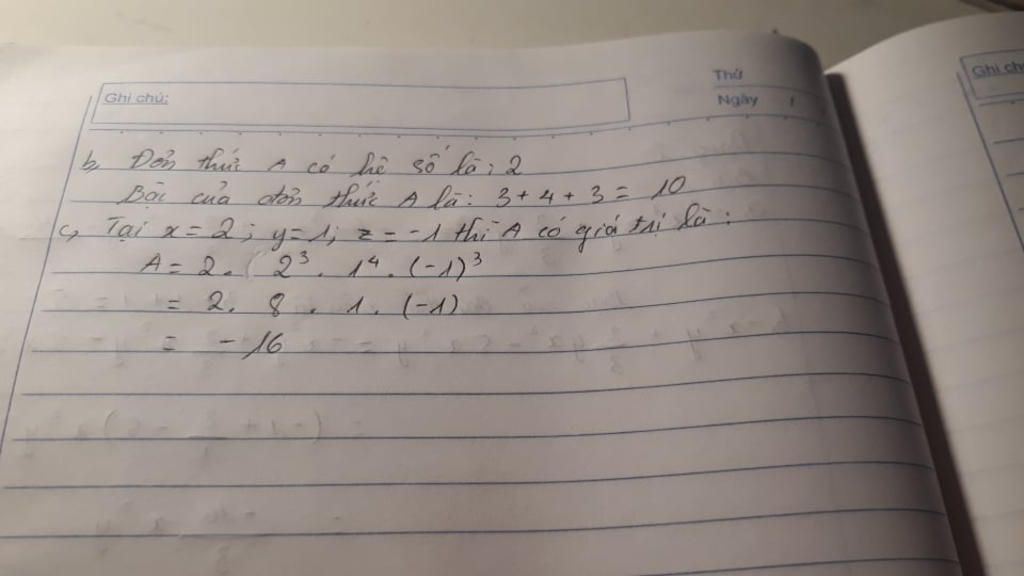 Ghi chú:
Thứ
Ngày /
Ghi chú
b, Đơn thức A có hệ số là: 2
Bậc của đơn thức A là: 3 + 4 + 3 = 10
c, Tại x = 2; y = 1; z = -1 thì A có giá trị là:
A = 2 . 2³ . 1⁴ . (-1)³
= 2 . 8 . 1 . (-1)
= -16